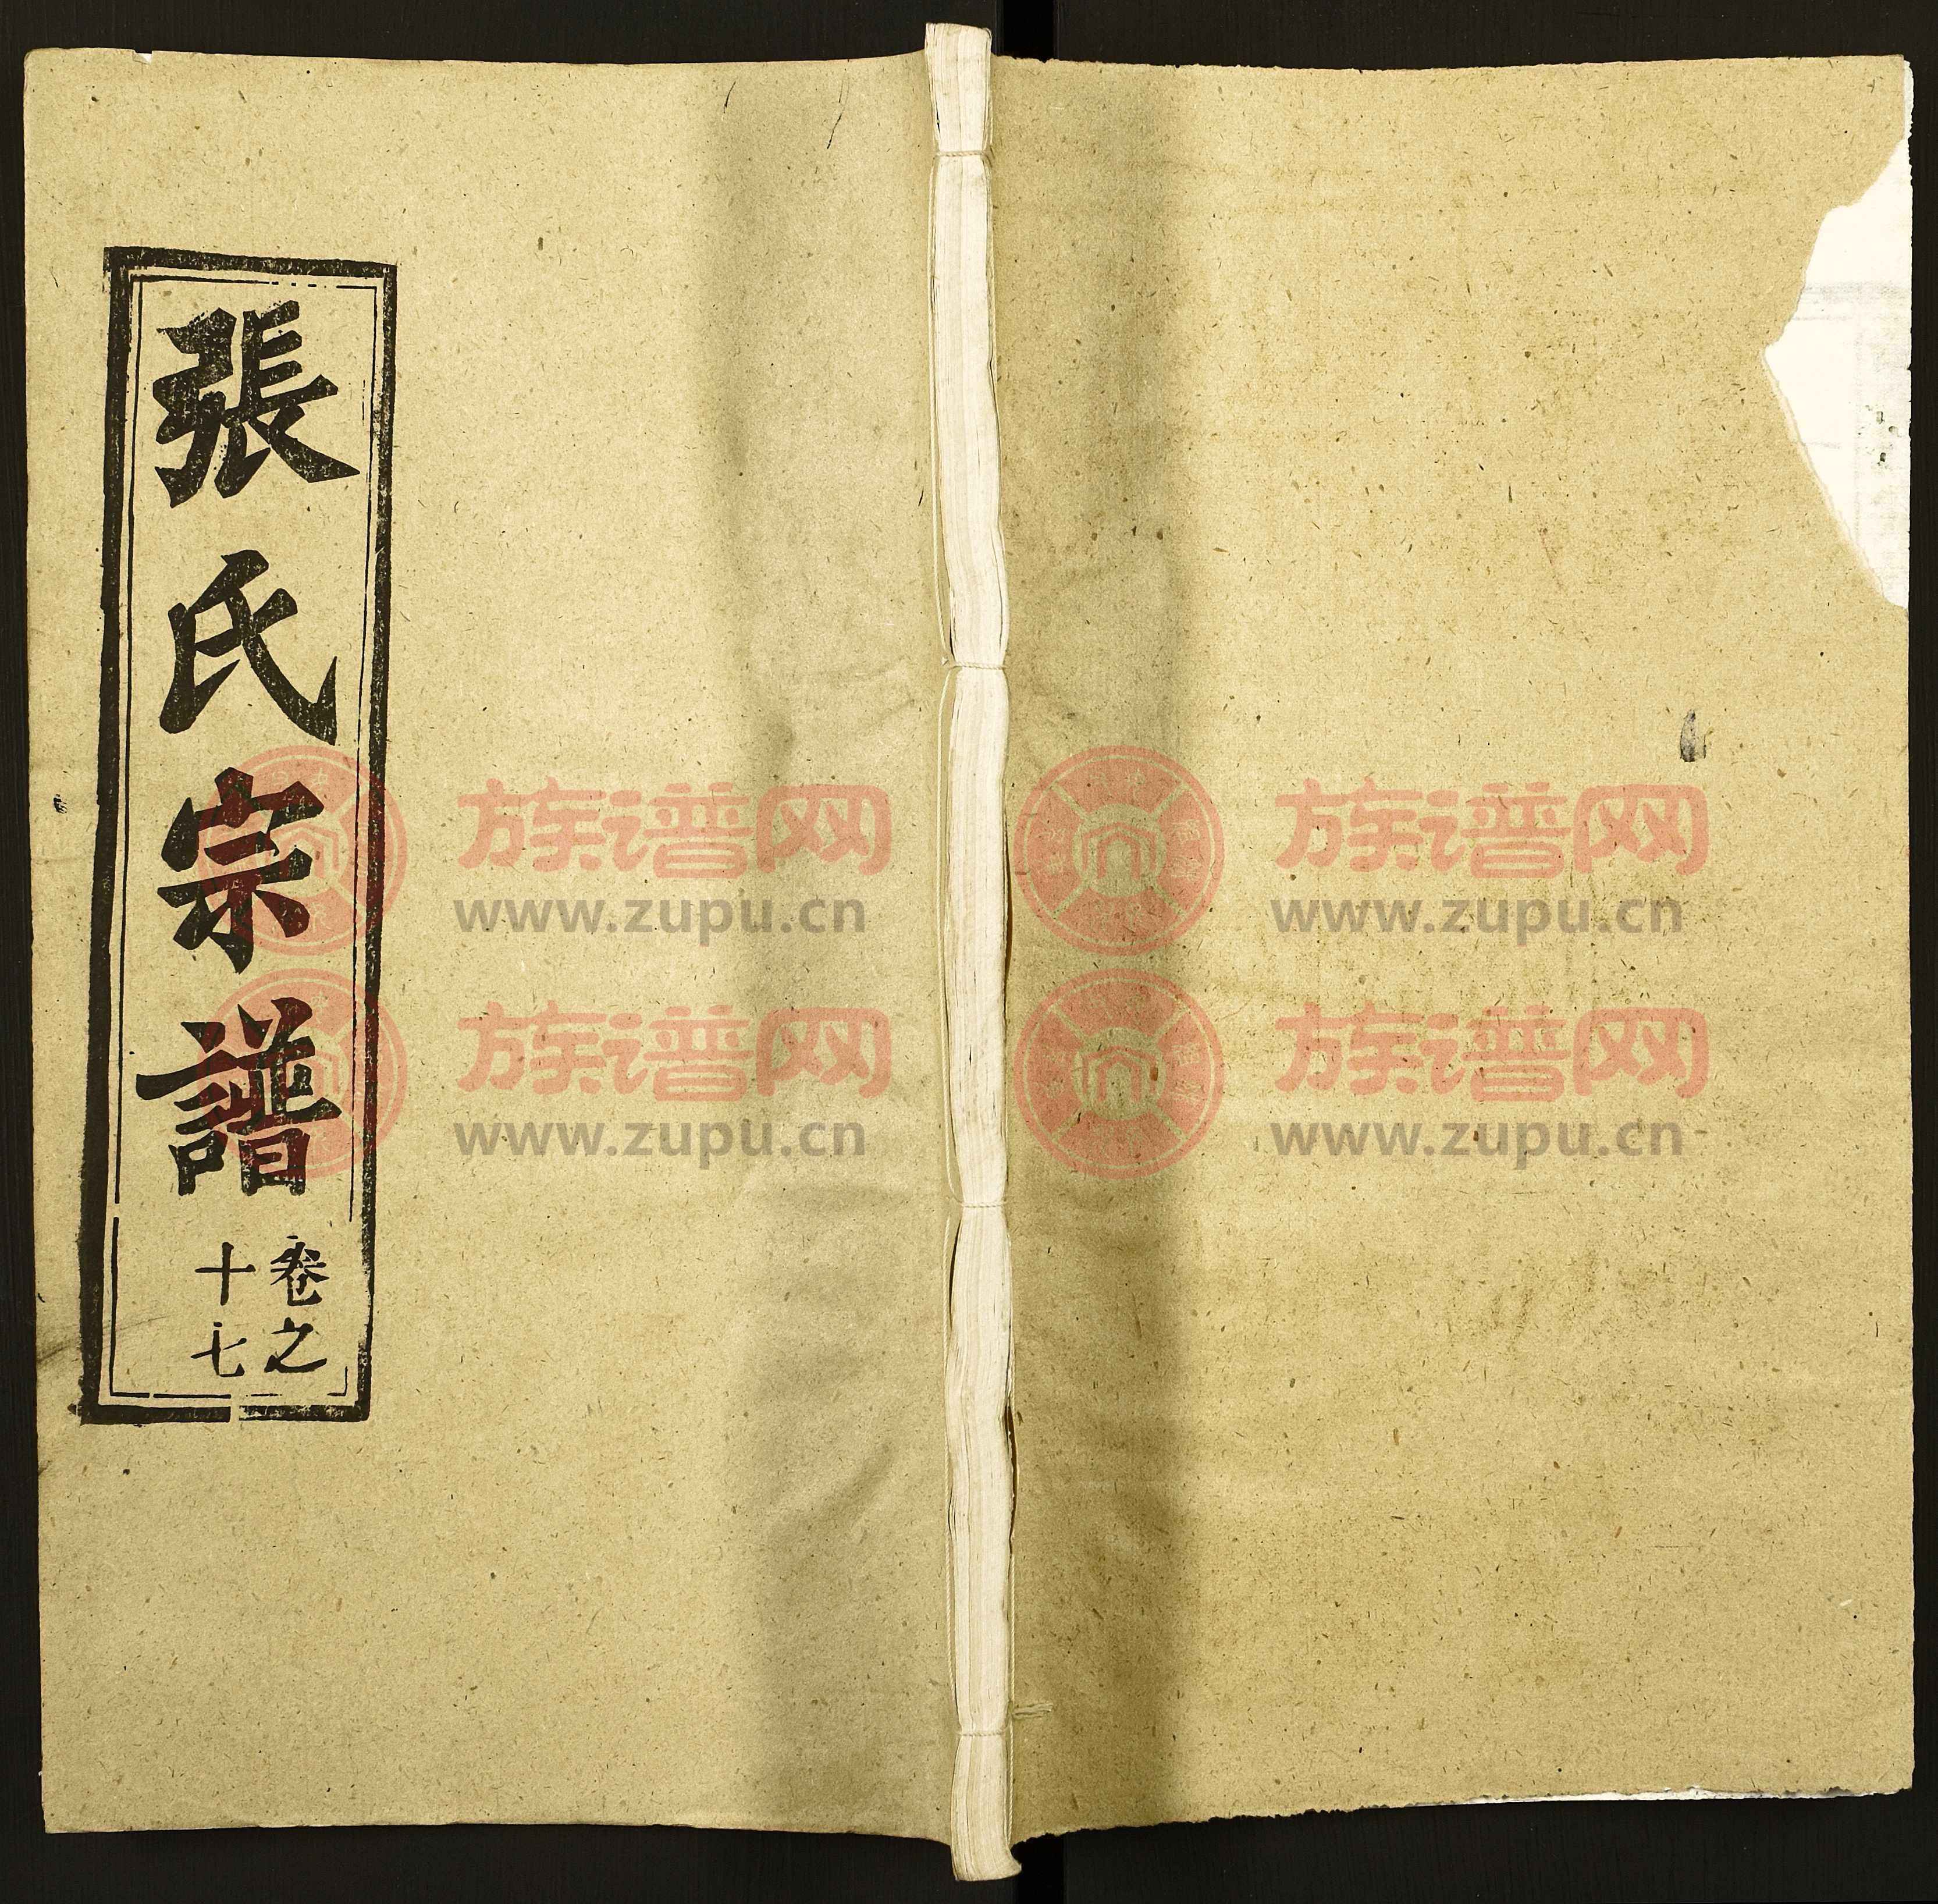 張氏宗譜
卷之
十七
族谱网
www.zupu.cn
族谱网
www.zupu.cn
族谱网
www.zupu.cn
族谱网
www.zupu.cn